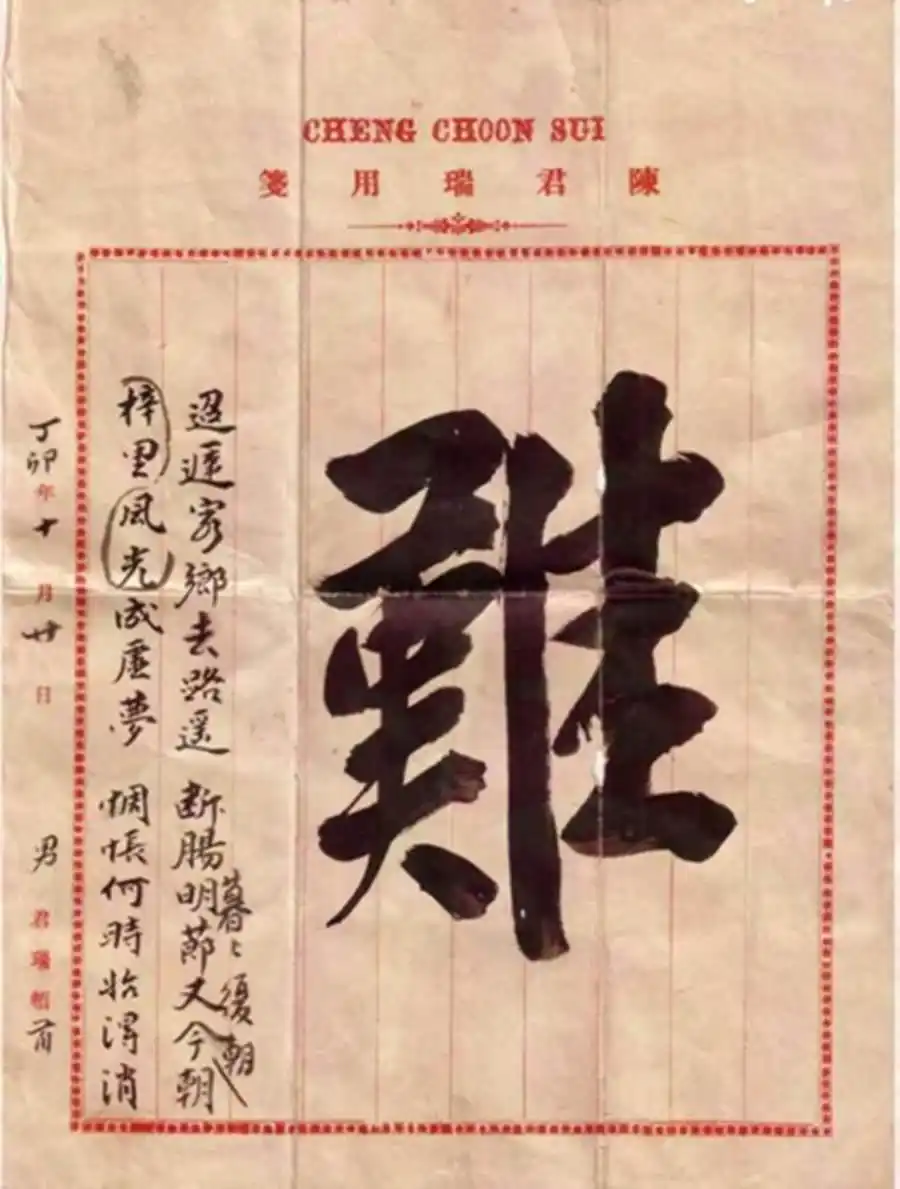 CHENG CHOON SUI
陳君瑞用箋
難
迢遞客鄉去路遙 断腸明節又今朝
暮〻復朝
梓里風光成虛夢 惆悵何時始得消
丁卯年十月廿日 男 君瑞